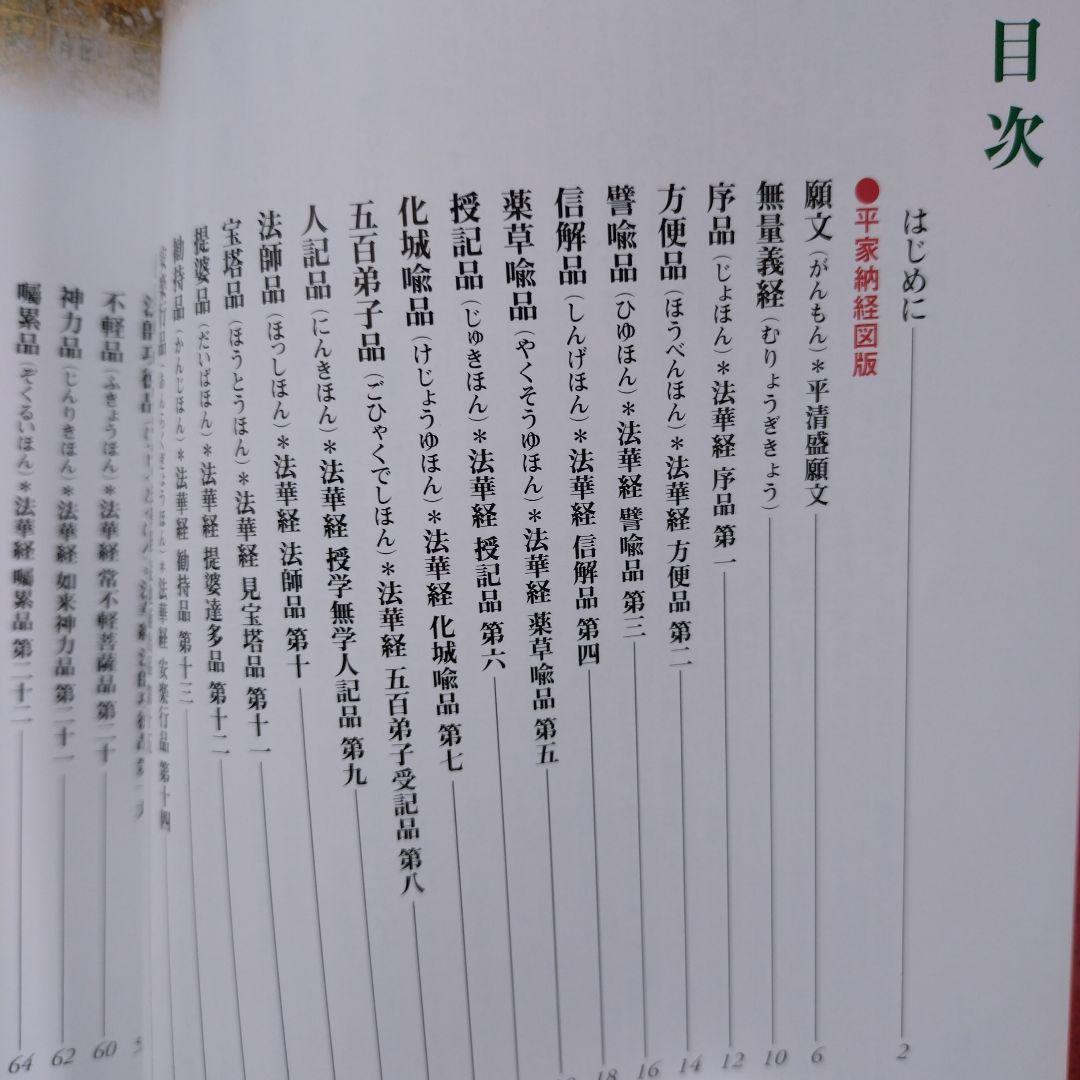 目次
はじめに 2
●平家納経図版
願文(がんもん)*平清盛願文 6
無量義経(むりょうぎきょう) 10
序品(じょほん)*法華経 序品 第一 12
方便品(ほうべんほん)*法華経 方便品 第二 14
譬喩品(ひゆほん)*法華経 譬喩品 第三 16
信解品(しんげほん)*法華経 信解品 第四 18
薬草喩品(やくそうゆほん)*法華経 薬草喩品 第五
授記品(じゅきほん)*法華経 授記品 第六
化城喩品(けじょうゆほん)*法華経 化城喩品 第七
五百弟子品(ごひゃくでしほん)*法華経 五百弟子受記品 第八
人記品(にんきほん)*法華経 授学無学人記品 第九
法師品(ほっしほん)*法華経 法師品 第十
宝塔品(ほうとうほん)*法華経 見宝塔品 第十一
提婆品(だいばほん)*法華経 提婆達多品 第十二
勧持品(かんじほん)*法華経 勧持品 第十三
*法華経 安楽行品 第十四
不軽品(ふきょうほん)*法華経 常不軽菩薩品 第二十 60
神力品(じんりきほん)*法華経 如来神力品 第二十一 62
嘱累品(ぞくるいほん)*法華経 嘱累品 第二十二 64